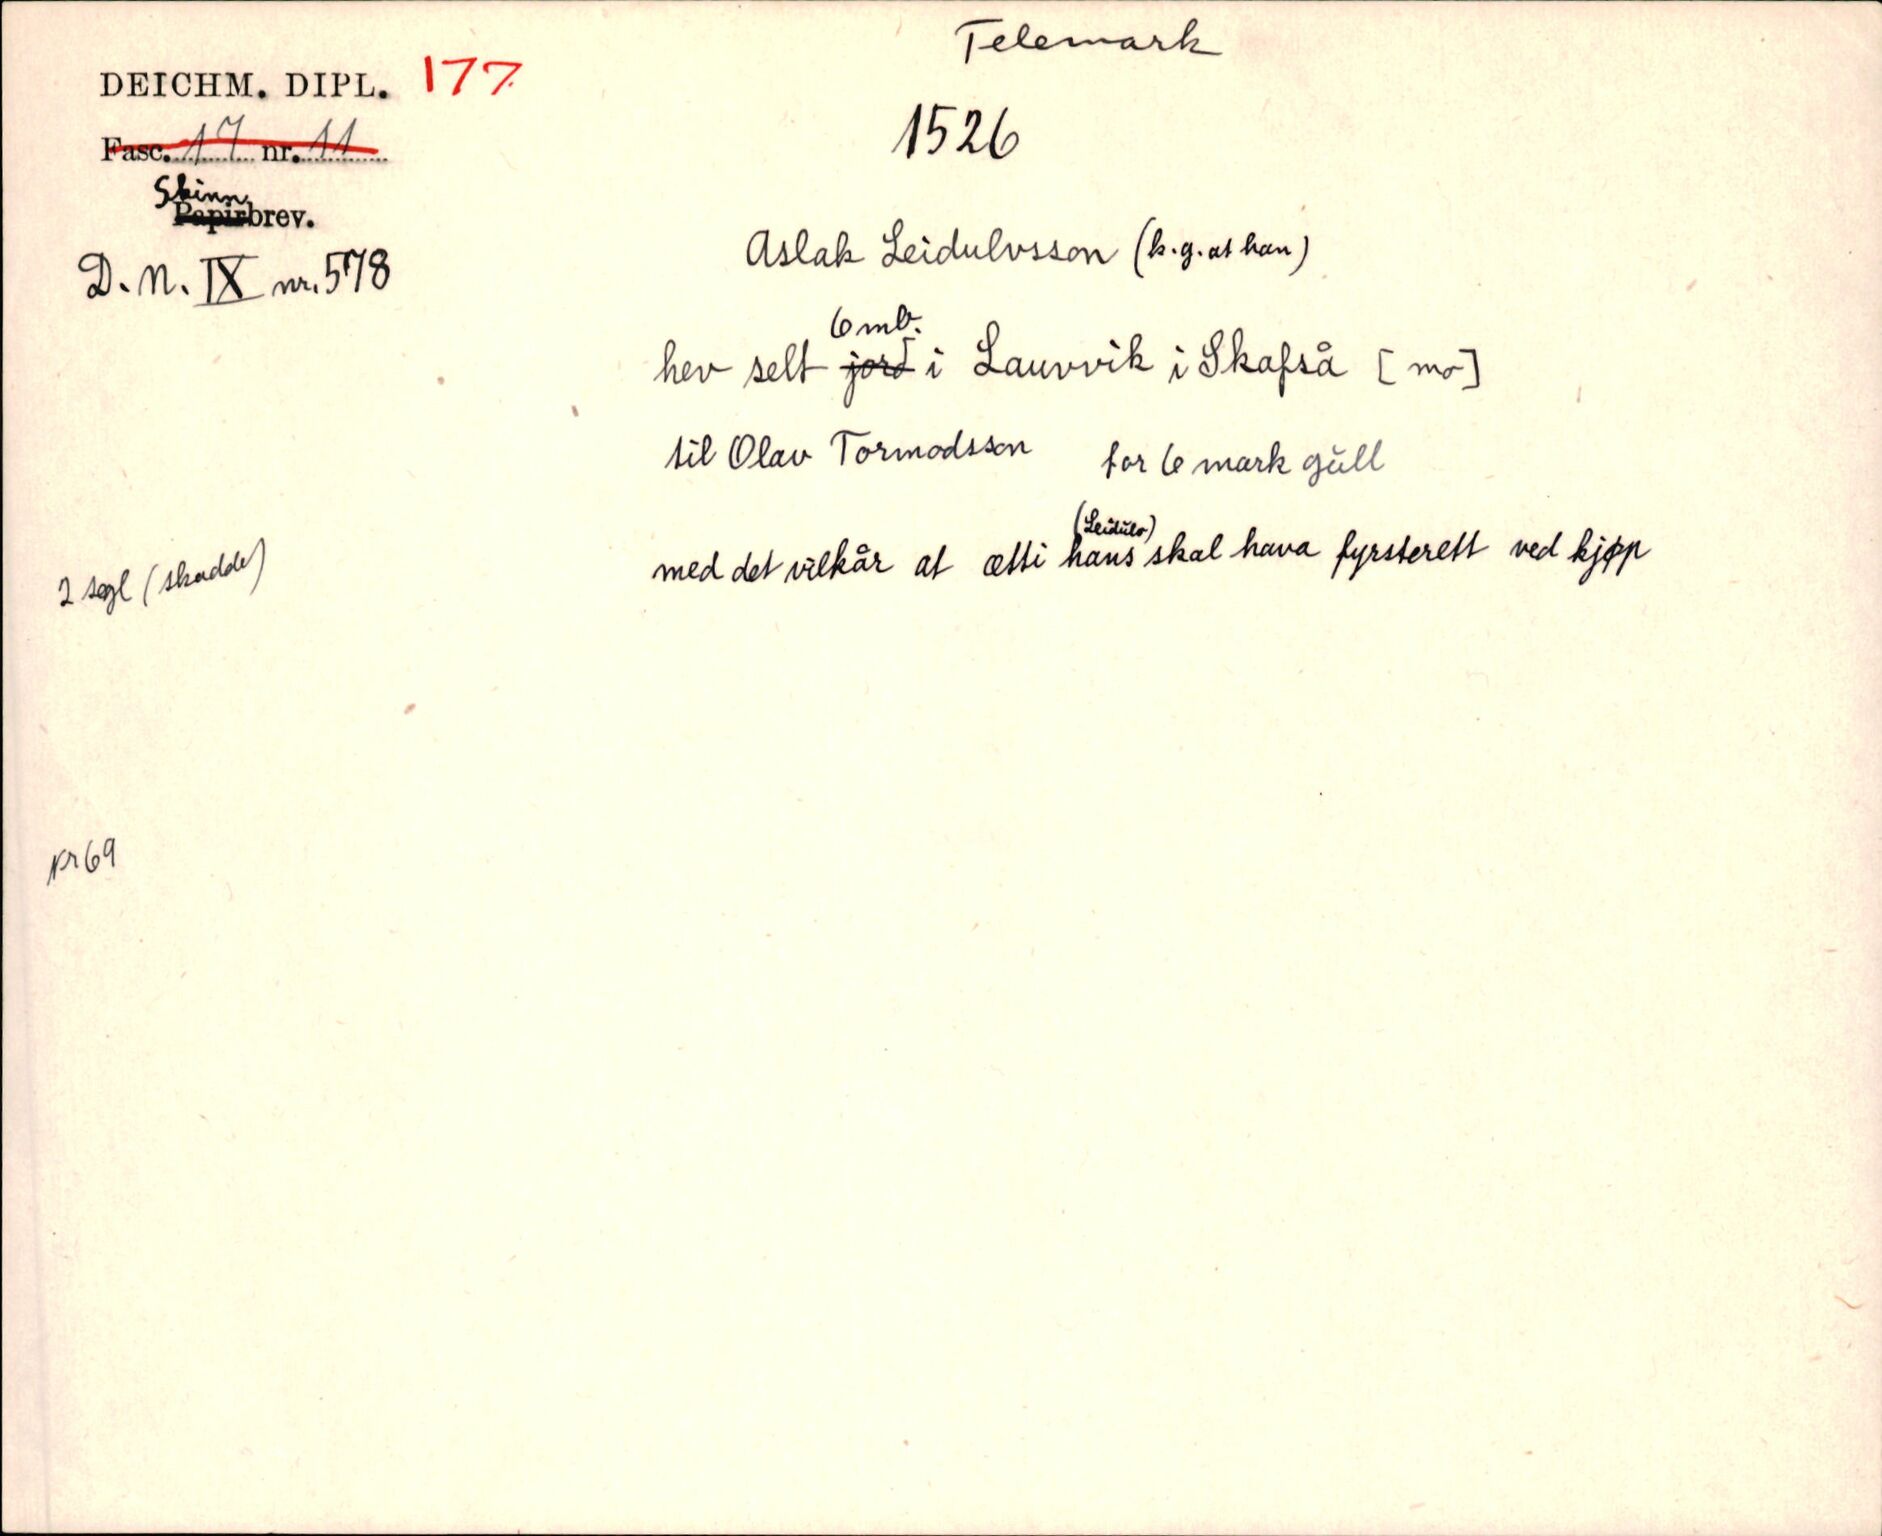 Telemark
DEICHM. DIPL. 177
Fasc. 17 nr. 11
1526
Skinn
Papirbrev.
D. N. IX nr. 578
Aslak Leidulvsson (k.g. at han)
6 mb.
hev selt jord i Lauvvik i Skafså [mo]
til Olav Tormodsson for 6 mark gull
(Leidulv)
med det vilkår at ætti hans skal hava fyrsterett ved kjøp
2 segl (skadde)
Nr 69